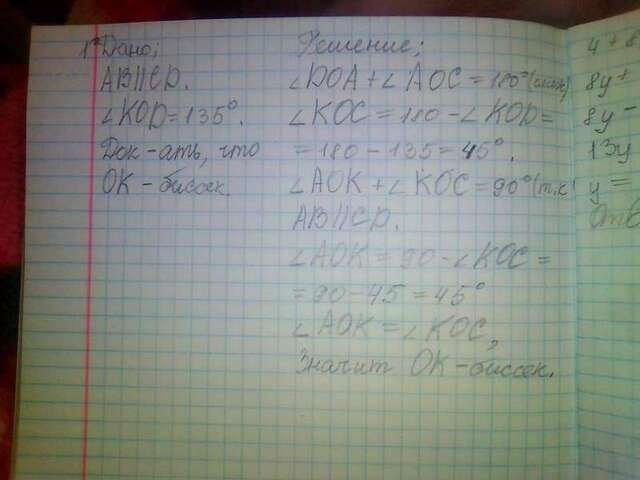 1° Дано:
AB||CD.
∠KOD=135°.
Док-ать, что
OK-биссек.
Решение;
∠DOA+∠AOC=180°(смеж)
∠KOC=180-∠KOD=
=180-135=45°.
∠AOK+∠KOC=90°(т.к
AB||CD.
∠AOK=90-∠KOC=
=90-45=45°
∠AOK=∠KOC,
Значит OK-биссек.
4+8
8y+
8y-
13y
y=
Отв